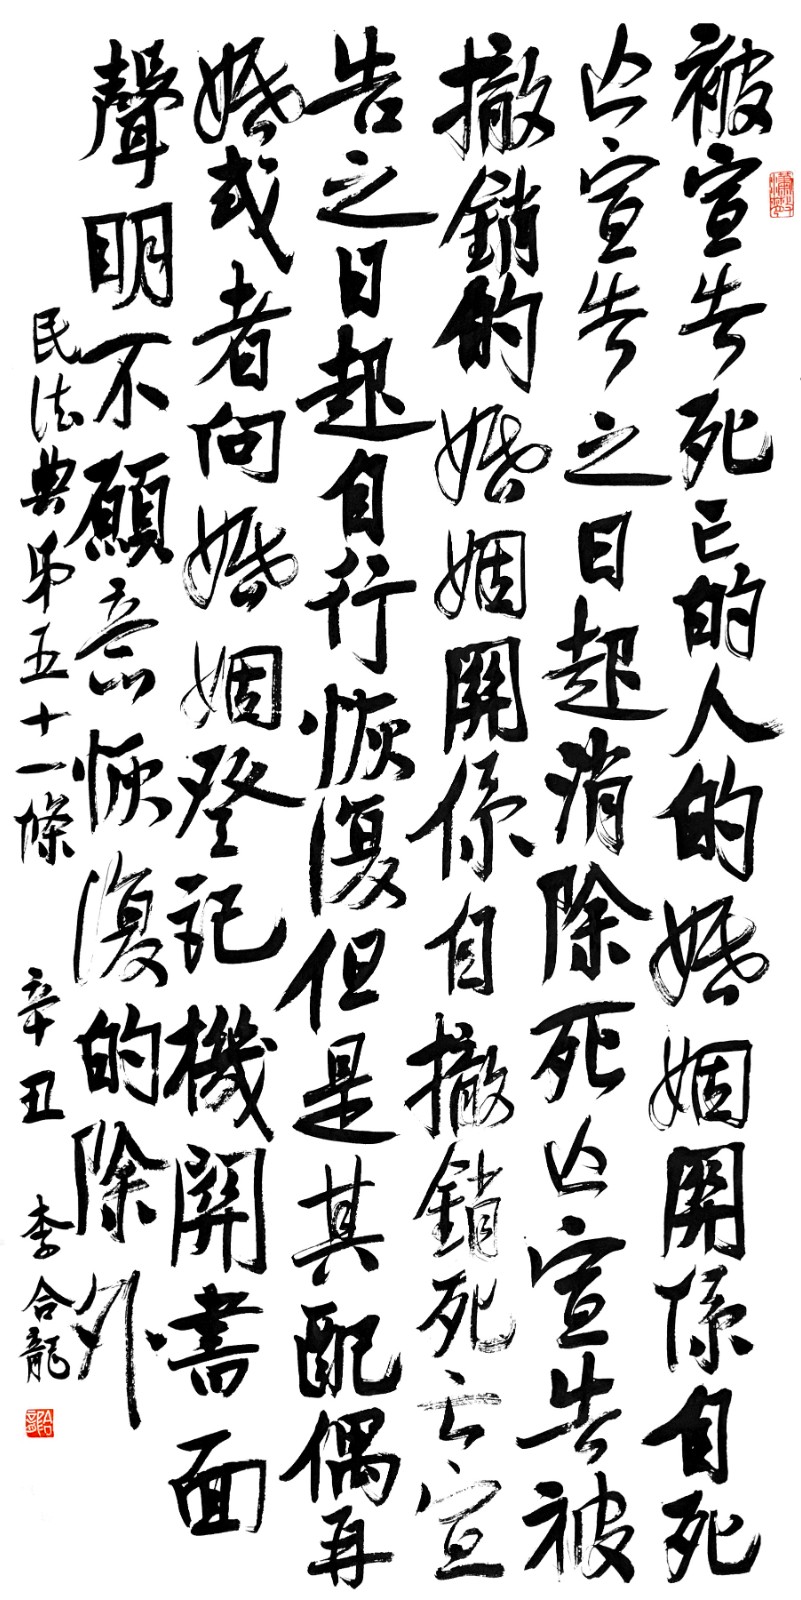 被宣告死亡的人的婚姻關係自死
亡宣告之日起消除死亡宣告被
撤銷的婚姻關係自撤銷死亡宣
告之日起自行恢復但是其配偶再
婚或者向婚姻登記機關書面
聲明不願意恢復的除外
民法典第五十一條 辛丑 李合龍